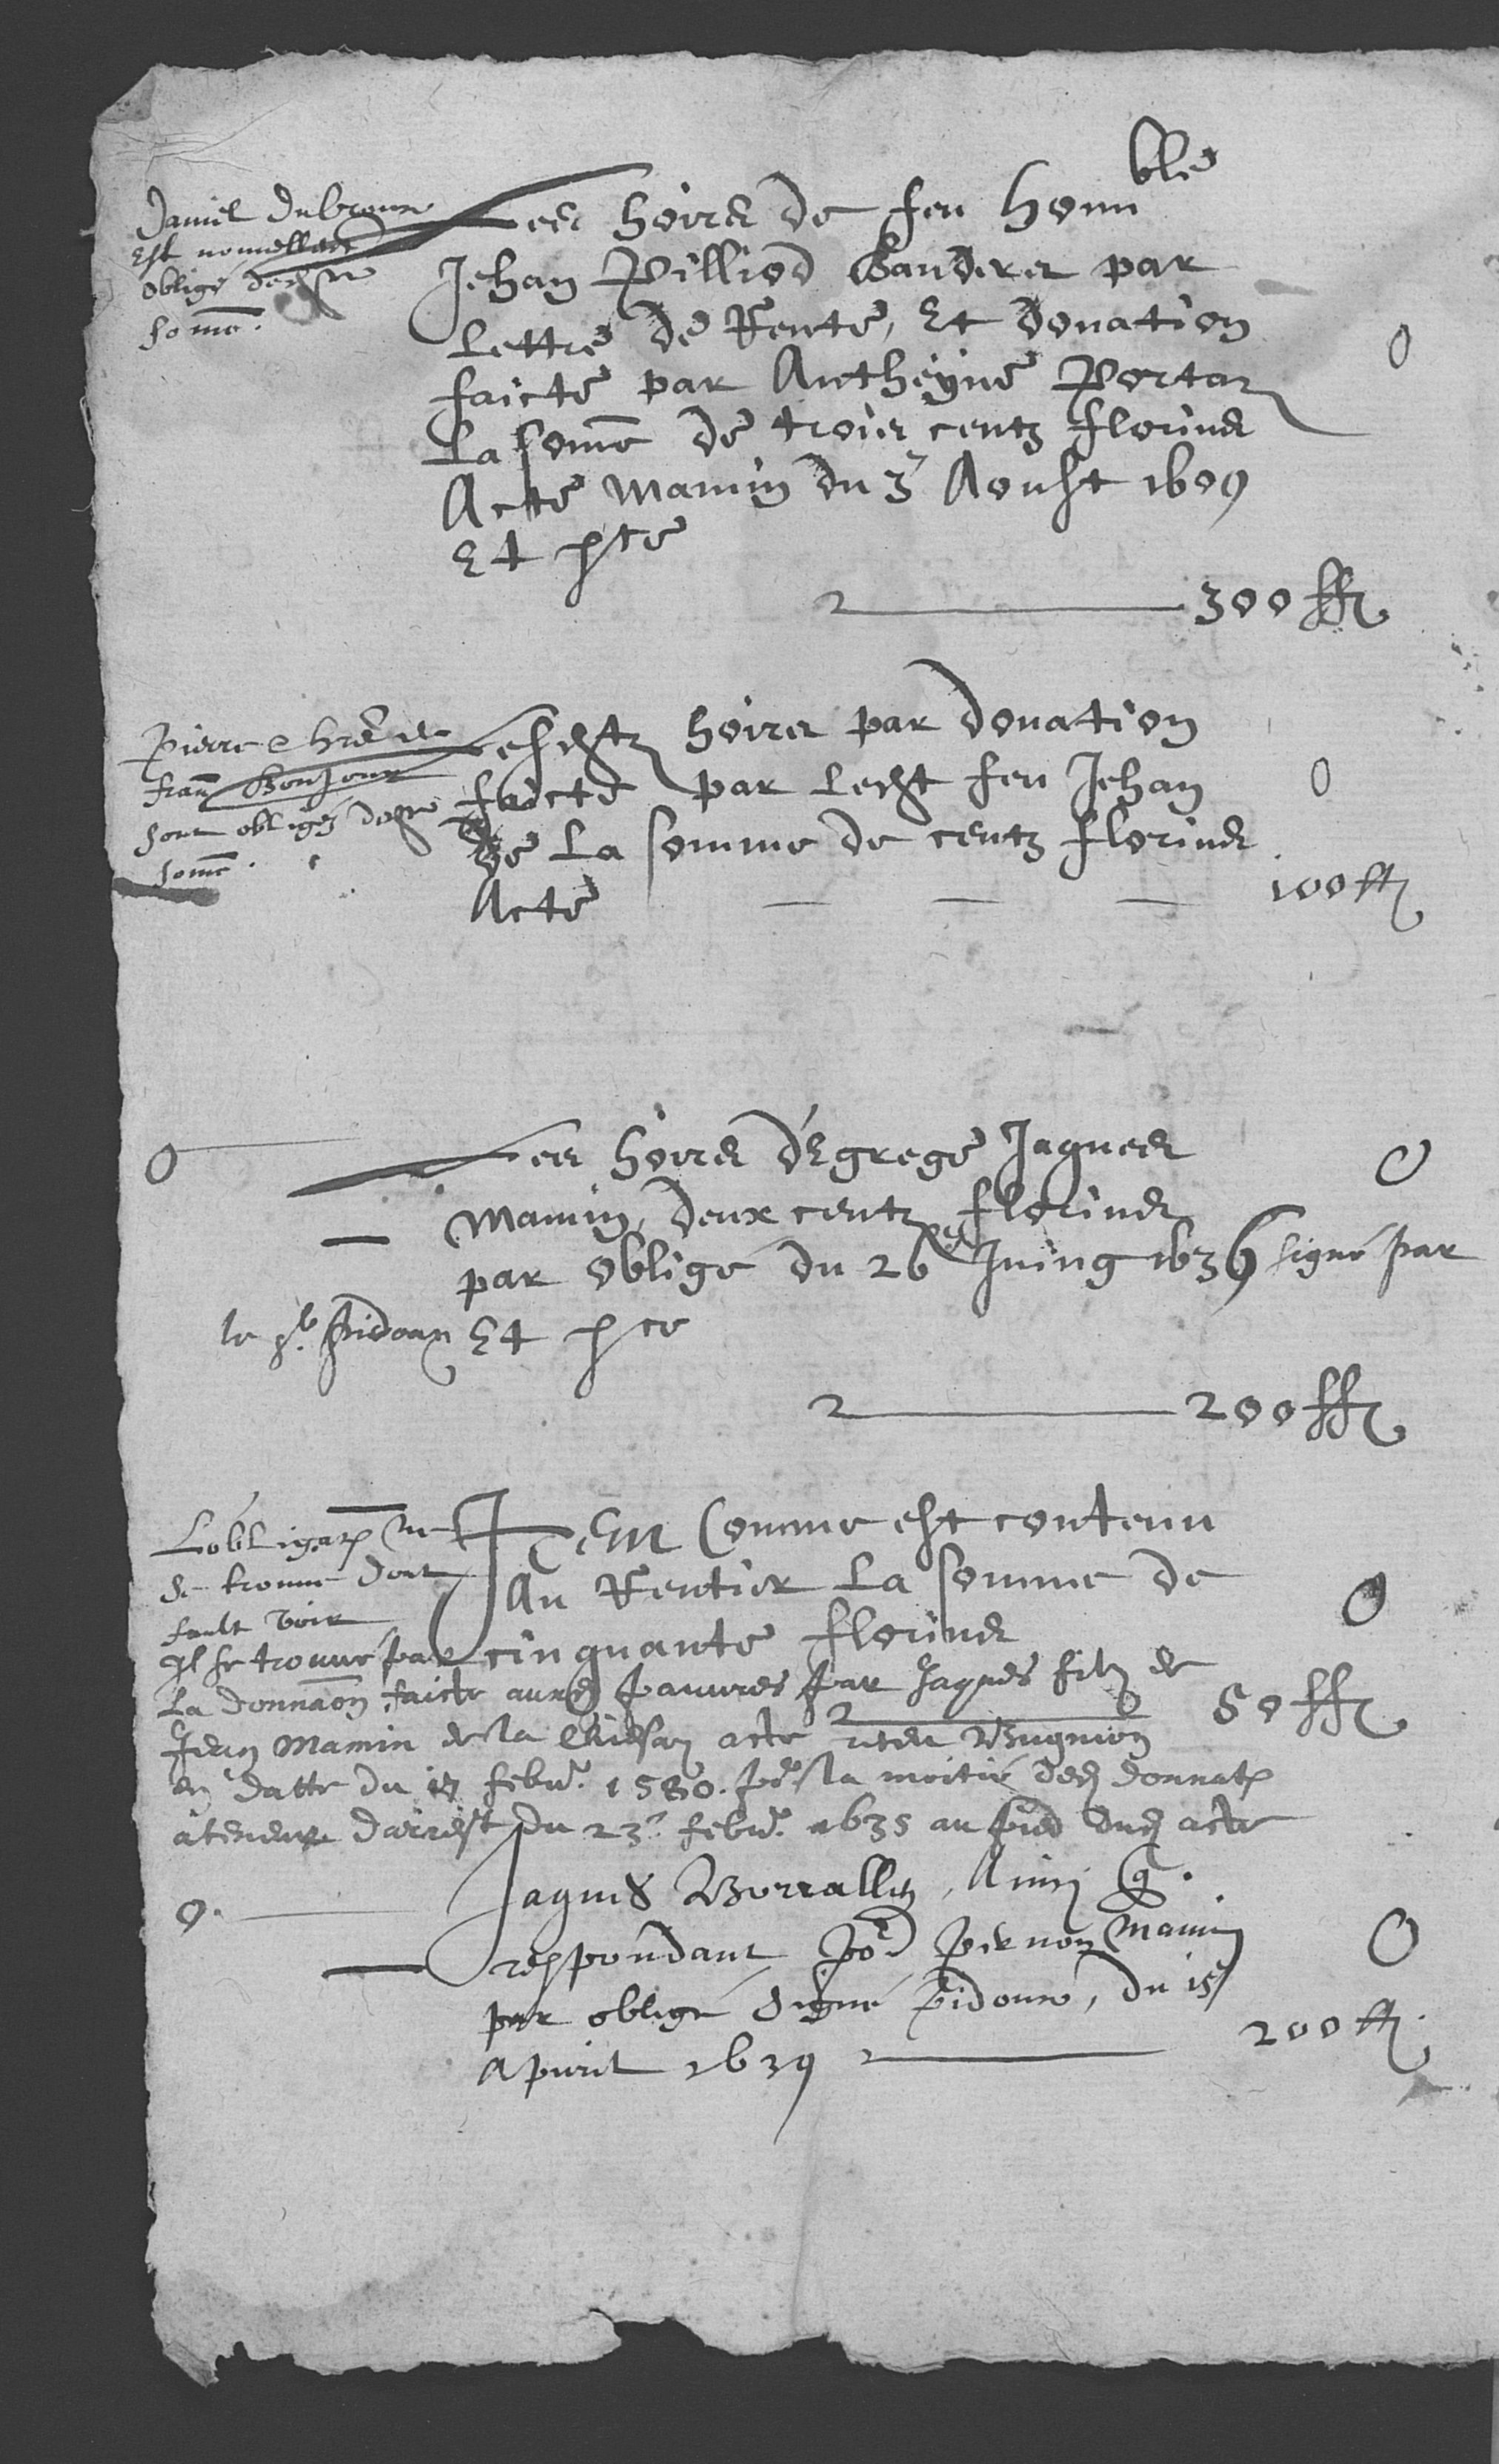 Daniel Dubroux
Est nouvellemt
obligé de
some.
Les hoirs de feu honnble
Jehan Pilliod Banderet par
Lettre de Rente, Et donation
faicte par Antheyne Portaz
La some de trois centz florins
Acte Mamin du 3e Aoust 1609
Et pste
300 ff
0
Pierre
Bonjour
sont obligéz de
some.
Lesdtz hoirs par donation
faicte par Ledt feu Jehan
De La somme de centz florins
Acte
100 ff
0
0
Les hoirs d'Egrege Jaques
Mamin, deux centz florins
par obligé du 26e Juing 1636 signé par
le Sr. Pidoux Et pste
200 ff
0
L'obligaõn ne
se trouve dont
fault voir
Item Comme est contenu
Au Rentier La somme de
cinquante florins
Il se trouve par
La donnaõn faicte aux pauvres par Jaques filz de
Jean Mamin de la acte Bugnion
en datte du febvr. 1580. la moitié ded donnat
a teneur d'arrest du 23e. febvr. 1635 au pied dud acte
50 ff
0
0.
Jaques
respondant por Pernon Mamin
par obligé Signé Pidoux, du 15
Apvril 1639
200 ff.
0